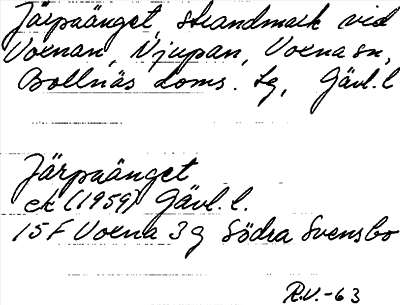 Järpaänget, strandmark vid
Voxnan, Njupan, Voxna sn,
Bollnäs doms. lg, Gävl. l
Järpaänget
ek (1959) Gävl. l.
15F Voxna 3g Södra Svensbo
R.V.-63